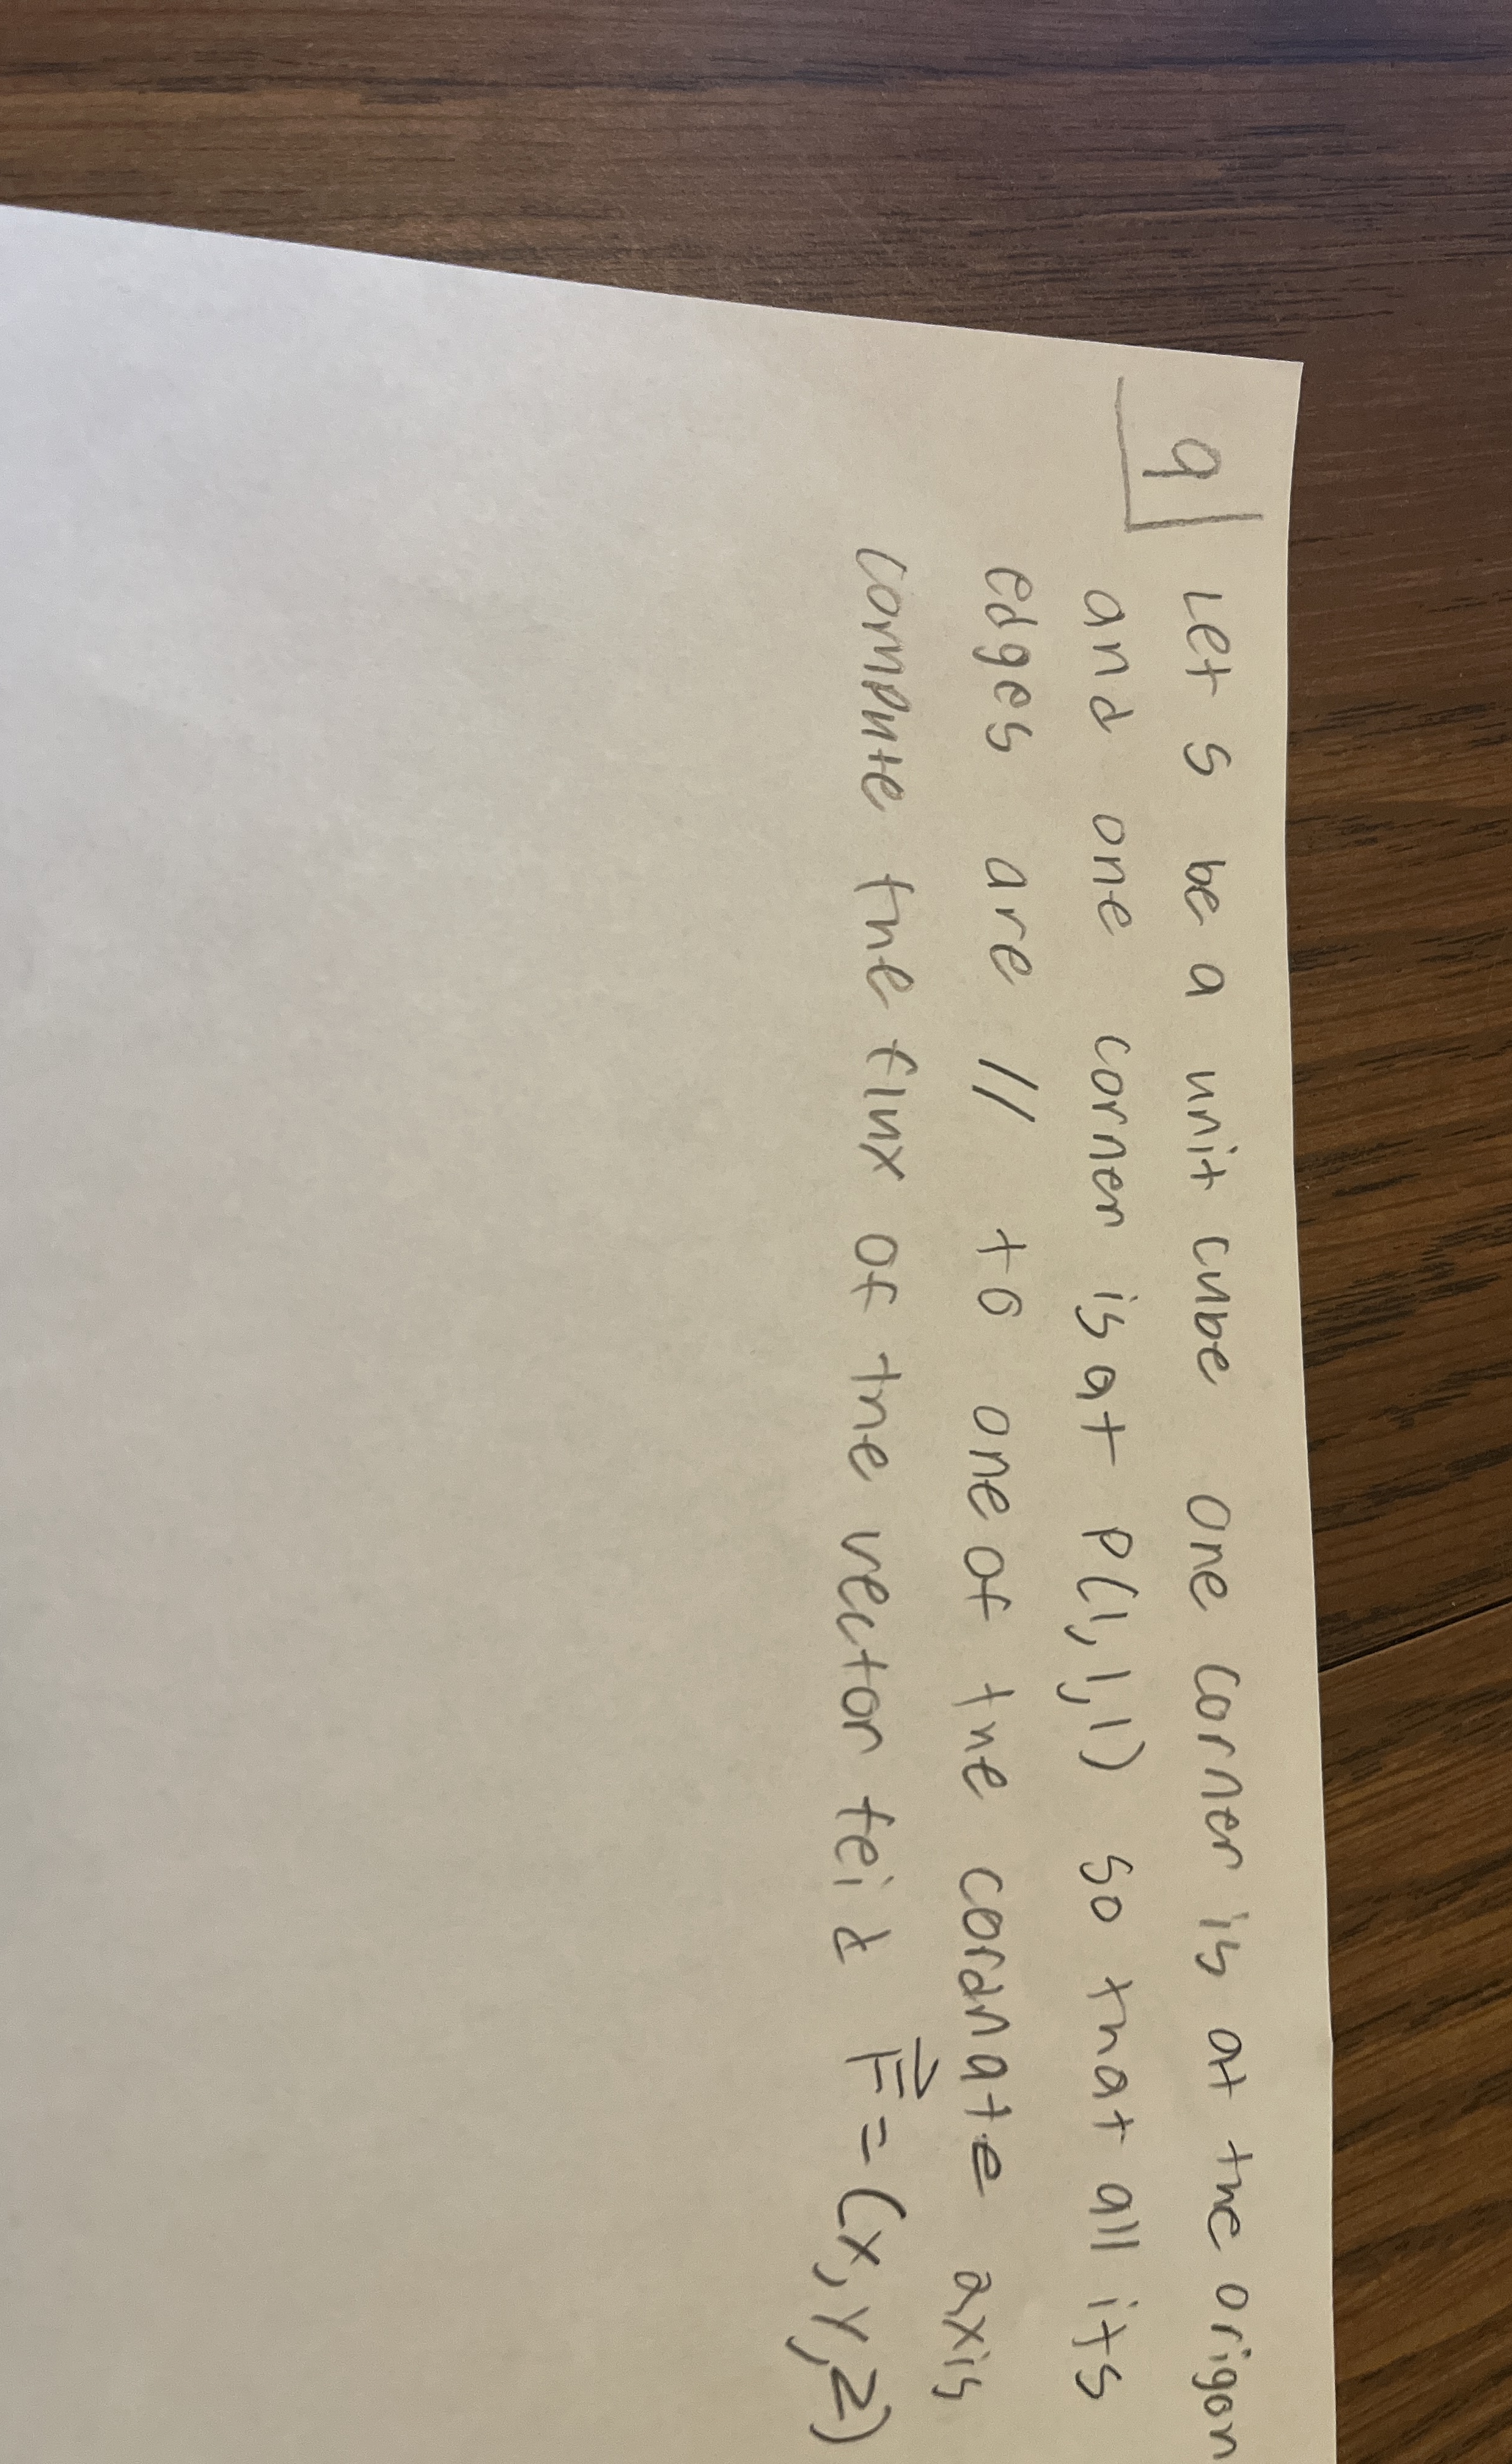 9
Let s be a unit cube one corner is at the origon
and one corner is at P(1,1,1) so that all its
edges are // to one of the cordnate axis
compute the flux of the vector feild F⃗=(x,y,z)